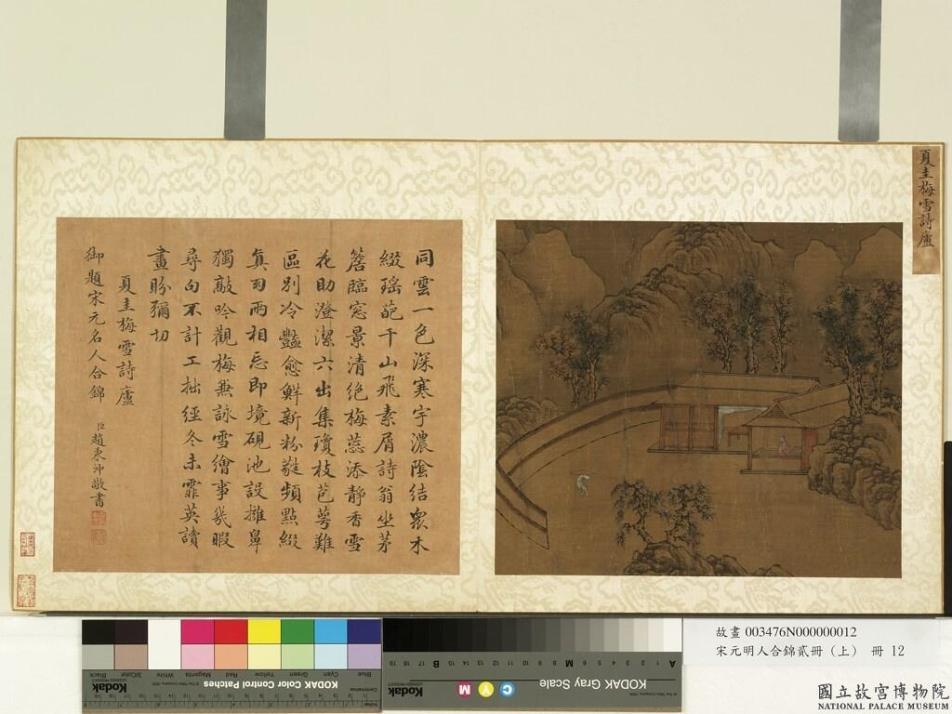 夏圭梅雪詩廬
同雲一色深寒宇濃陰結衆木
綴瑤葩千山飛素屑詩翁坐茅
簷臨窓景清絕梅蕊添靜香雪
花助澄潔六出集瓊枝苞萼難
區別冷豔愈鮮新粉凝頻點綴
真兩相忘即境硯池設擁鼻
獨敲吟觀梅兼詠雪繪事幾暇
尋句不計工拙經冬未霏英讀
畫盼彌切
夏圭梅雪詩廬
御題宋元名人合錦 臣趙秉冲敬書
Blue Cyan Green Yellow Red Magenta White 3/Color Black
KODAK Color Control Patches
Kodak
KODAK Gray Scale
Kodak
C Y M
A 1 2 3 4 5 6 M 8 9 10 11 12 13 14 15 B 17 18 19
故畫 003476N000000012
宋元明人合錦貳冊（上） 冊 12
國立故宮博物院
NATIONAL PALACE MUSEUM